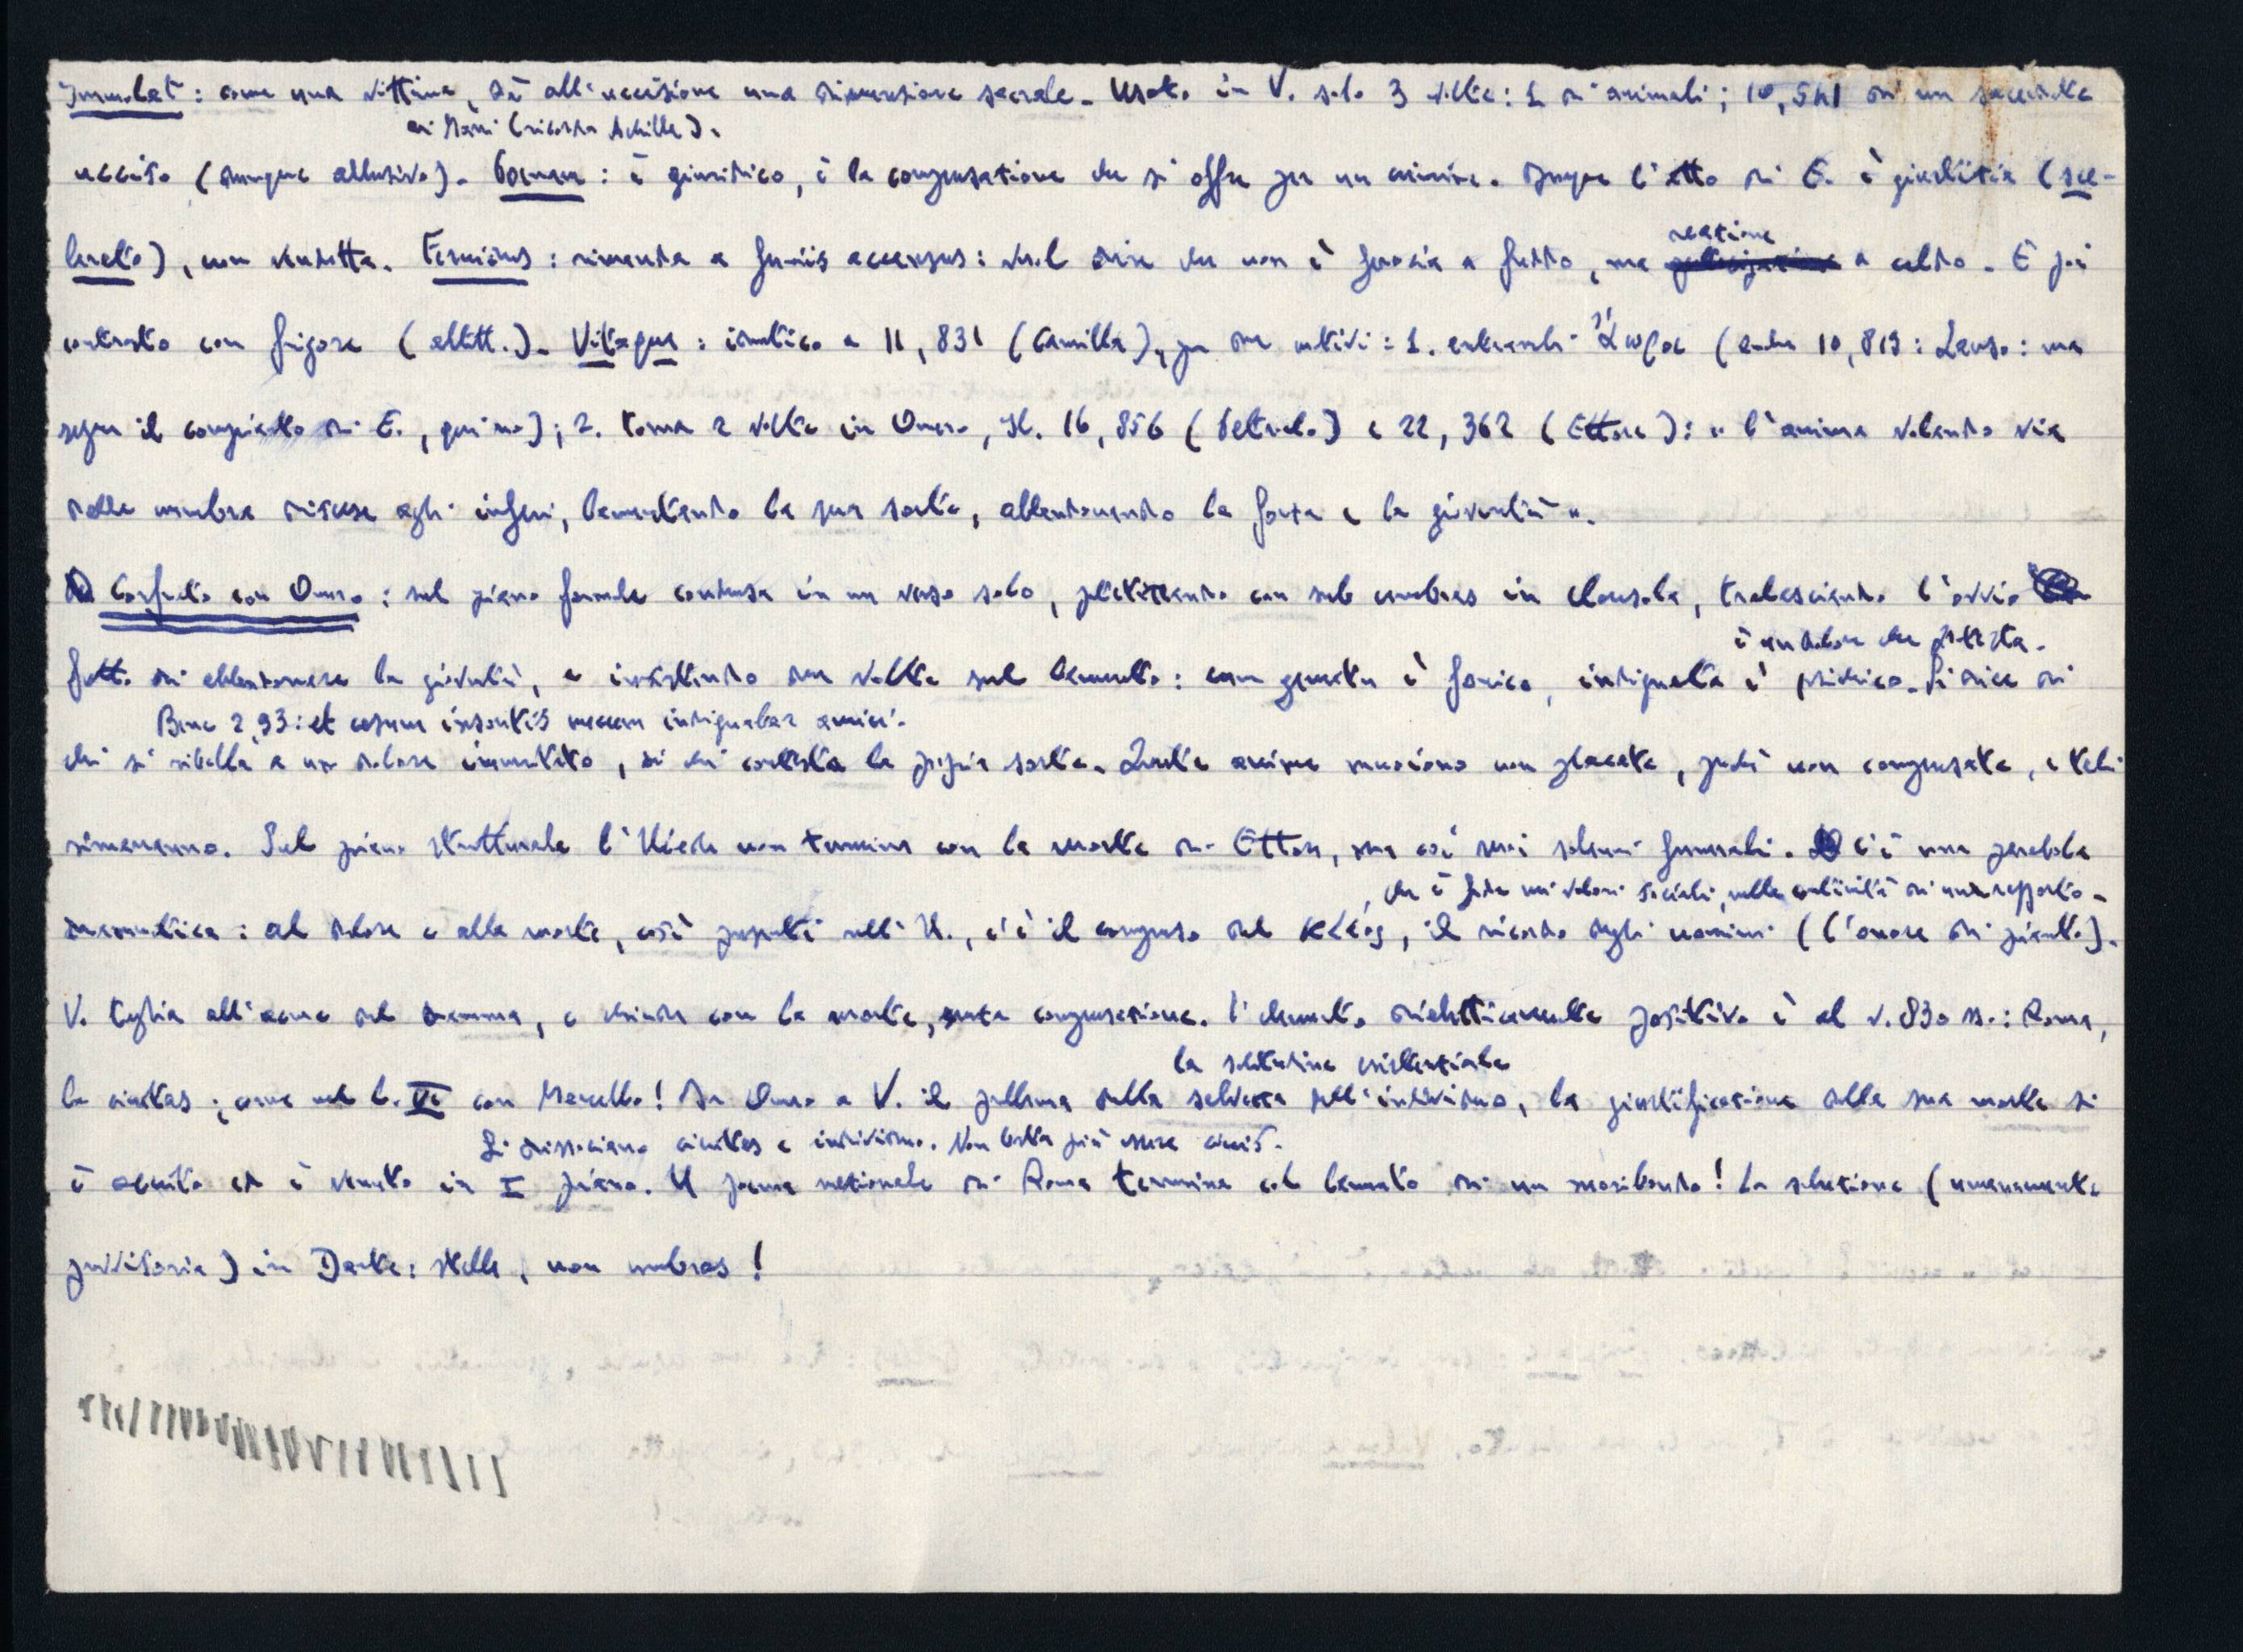 Immolat: come una vittima, dà all'uccisione una dimensione sacrale. Usato in V. solo 3 volte: 1 di animali; 10, 541 di un sacerdote
ai Mani (ricorda Achille).
ucciso (dunque allusivo). Poenam: è giuridico, è la compensazione che si offre per un crimine. Dunque l'atto di E. è giustizia (sce-
lerato), non vendetta. Fervidus: rimanda a furiis accensus: vuol dire che non è ferocia a freddo, ma a caldo. È poi
reazione
contrasto con frigore (allitt.). Vitaque: identico a 11, 831 (Camilla), per due motivi: 1. entrambi ἄωροι (anche 10, 819: Lauso: ma
segue il compianto di E., qui no); 2. torna 2 volte in Omero, Il. 16, 856 (Patroclo) e 22, 362 (Ettore): "l'anima volando via
dalle membra discese agli inferi, lamentando la sua sorte, abbandonando la forza e la gioventù".
Confronto con Omero: sul piano formale condensa in un verso solo, patetizzando con sub umbras in clausola, tralasciando l'ovvio
fatto di abbandonare la gioventù, e insistendo due volte sul lamento: cum gemitu è fonico, indignata è psichico. Si dice di
è un dolore che protesta.
Buc 2,93: et casum insontis mecum indignabar amici.
chi si ribella a un dolore immeritato, di chi contesta la propria sorte. Queste anime muoiono non placate, perché non compensate, e tali
rimarranno. Sul piano strutturale l'Iliade non termina con la morte di Ettore, ma coi suoi solenni funerali. C'è una parabola
, che è fede nei valori sociali, nella continuità di un rapporto -
drammatica: al dolore e alla morte, così presenti nell'Il., c'è il compenso del κλέος, il ricordo degli uomini (l'onore di pianto).
V. taglia all'acme del dramma, e chiude con la morte, senza compensazione. L'elemento dialetticamente positivo è al v. 830 ss.: Roma,
la solitudine esistenziale
la civitas; come nel l. VI con Marcello! Da Omero a V. il problema della salvezza dell'individuo, la giustificazione della sua morte si
Si dissociano civitas e individuo. Non basta più essere civis.
è acuito ed è venuto in I piano. Il poema nazionale di Roma termina col lamento di un moribondo! La soluzione (umanamente
provvisoria) in Dante: stelle, non umbras!